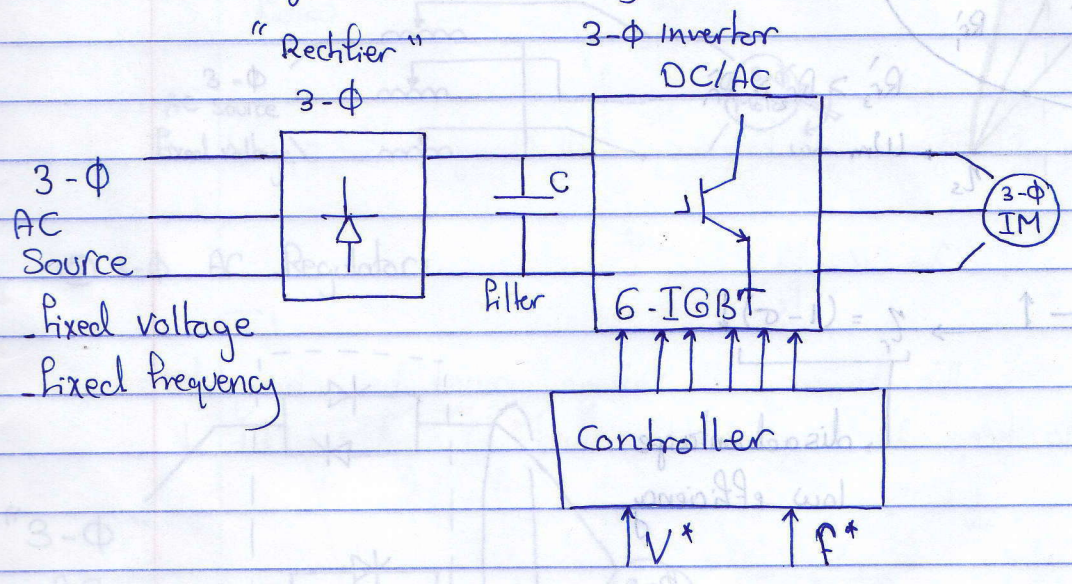 "Rectifier"
3-Φ
3-Φ Invertor
DC/AC
3-Φ
AC
Source
- fixed voltage
- fixed frequency
C
filter
6-IGBT
3-Φ
IM
Controller
V*
f*